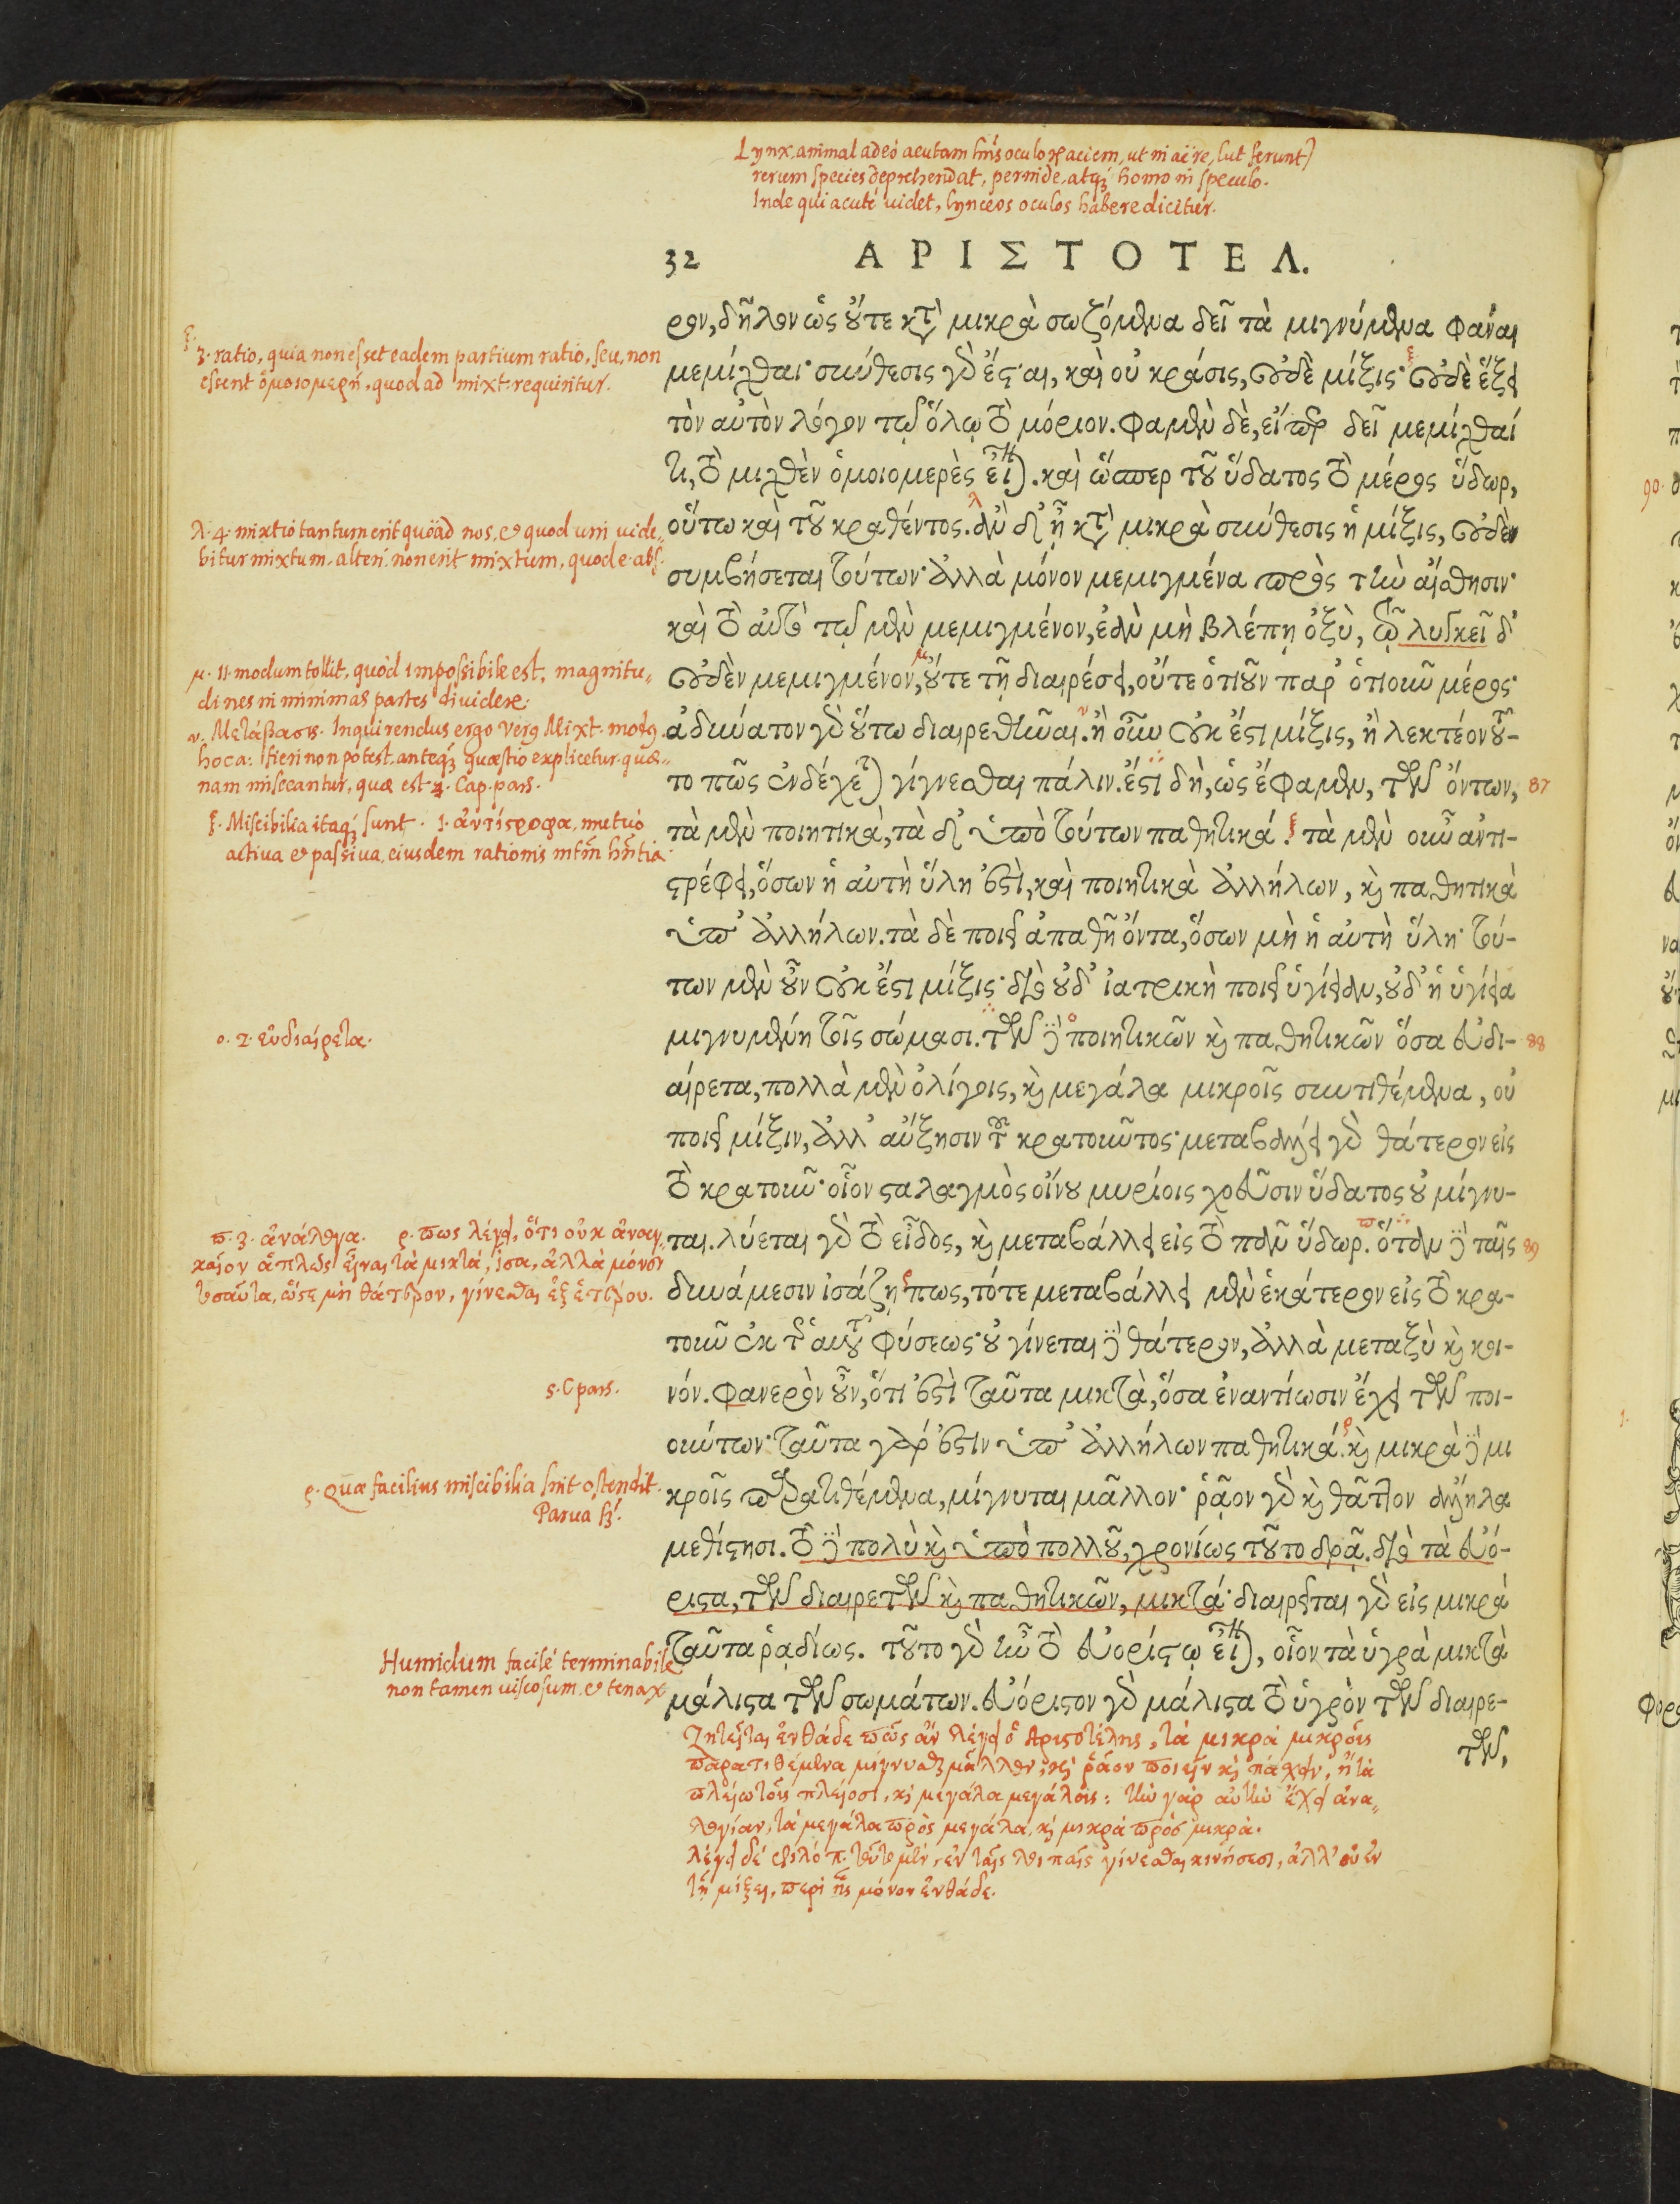 Lynx, animal adeò acutam huiꝰ oculoꝝ aciem, ut in aëre, (ut ferunt)
rerum species deprehendat, perinde, atqꝫ homo in speculo.
Inde qui acutè uidet, lynceos oculos habere dicitur.
32 ΑΡΙΣΤΟΤΕΛ.
ρον, δῆλον ὡς οὔτε κατὰ μικρὰ σωζόμενα δεῖ τὰ μιγνύμενα φάναι
μεμίχθαι· σύνθεσις γὰρ ἔσται, καὶ οὐ κράσις, οὐδὲ μίξις· οὐδὲ ἕξει
τὸν αὐτὸν λόγον τῷ ὅλῳ τὸ μόριον. φαμὲν δὲ, εἴπερ δεῖ μεμίχθαί
τι, τὸ μιχθὲν ὁμοιομερὲς εἶναι. καὶ ὥσπερ τοῦ ὕδατος τὸ μέρος ὕδωρ,
οὕτω καὶ τοῦ κραθέντος. ἂν δ' ᾖ κατὰ μικρὰ σύνθεσις ἡ μίξις, οὐδὲν
συμβήσεται τούτων· ἀλλὰ μόνον μεμιγμένα πρὸς τὴν αἴσθησιν·
καὶ τὸ αὐτὸ τῷ μὲν μεμιγμένον, ἐὰν μὴ βλέπῃ ὀξὺ, τῷ λυγκεῖ δ'
οὐδὲν μεμιγμένον, οὔτε τῇ διαιρέσει, οὔτε ὁτιοῦν παρ' ὁτιοῦν μέρος·
ἀδύνατον γὰρ οὕτω διαιρεθῆναι. ἢ οὖν οὐκ ἔστι μίξις, ἢ λεκτέον τοῦ-
το πῶς ἐνδέχεται γίγνεσθαι πάλιν. ἔστι δὴ, ὡς ἔφαμεν, τῶν ὄντων, 87
τὰ μὲν ποιητικὰ, τὰ δ' ὑπὸ τούτων παθητικά. τὰ μὲν οὖν ἀντι-
στρέφει, ὅσων ἡ αὐτὴ ὕλη ἐστὶ, καὶ ποιητικὰ ἀλλήλων, καὶ παθητικὰ
ὑπ' ἀλλήλων. τὰ δὲ ποιεῖ ἀπαθῆ ὄντα, ὅσων μὴ ἡ αὐτὴ ὕλη· τού-
των μὲν οὖν οὐκ ἔστι μίξις· διὸ οὐδ' ἰατρικὴ ποιεῖ ὑγίειαν, οὐδ' ἡ ὑγίεια
μιγνυμένη τοῖς σώμασι. τῶν δὲ ποιητικῶν καὶ παθητικῶν ὅσα εὐδι- 88
αίρετα, πολλὰ μὲν ὀλίγοις, καὶ μεγάλα μικροῖς συντιθέμενα, οὐ
ποιεῖ μίξιν, ἀλλ' αὔξησιν τοῦ κρατοῦντος· μεταβάλλει γὰρ θάτερον εἰς
τὸ κρατοῦν· οἷον σταλαγμὸς οἴνου μυρίοις χοεῦσιν ὕδατος οὐ μίγνυ-
ται. λύεται γὰρ τὸ εἶδος, καὶ μεταβάλλει εἰς τὸ πᾶν ὕδωρ. ὅταν δὲ ταῖς 89
δυνάμεσιν ἰσάζῃ πως, τότε μεταβάλλει μὲν ἑκάτερον εἰς τὸ κρα-
τοῦν ἐκ τῆς αὑτοῦ φύσεως· οὐ γίνεται δὲ θάτερον, ἀλλὰ μεταξὺ καὶ κοι-
νόν. φανερὸν οὖν, ὅτι ἐστὶ ταῦτα μικτὰ, ὅσα ἐναντίωσιν ἔχει τῶν ποι-
ούντων· ταῦτα γάρ ἐστιν ὑπ' ἀλλήλων παθητικά. καὶ μικρὰ δὲ μι
κροῖς παρατιθέμενα, μίγνυται μᾶλλον· ῥᾷον γὰρ καὶ θᾶττον ἄλληλα
μεθίστησι. τὸ δὲ πολὺ καὶ ὑπὸ πολλοῦ, χρονίως τοῦτο δρᾷ. διὸ τὰ εὐό-
ριστα, τῶν διαιρετῶν καὶ παθητικῶν, μικτά· διαιρεῖται γὰρ εἰς μικρὰ
ταῦτα ῥᾳδίως. τοῦτο γὰρ ἦν τὸ εὐορίστῳ εἶναι, οἷον τὰ ὑγρὰ μικτὰ
μάλιστα τῶν σωμάτων. εὐόριστον γὰρ μάλιστα τὸ ὑγρὸν τῶν διαιρε-
τῶν,
3. ratio, quia non esset eadem partium ratio, seu, non
essent ὁμοιομερῆ, quod ad mixt. requiritur.
λ. 4. mixtio tantum erit quöad nos, et quod uni uide„
bitur mixtum, alteri non erit mixtum, quod e. abs.
μ. 11. modum tollit, quòd impossibile est, magnitu„
dines in minimas partes diuidere.
ν. Μετάβασις. Inquirendus ergo verꝰ Mixt. modꝰ.
hoca: fieri non potest, anteqꝫ quæstio explicetur quæ„
nam misceantur, quæ est 2. Cap. pars.
ξ. Miscibilia itaqꝫ sunt. 1. ἀντίστροφα, mutuò
actiua et passiua, eiusdem rationis mtm̃ hñtia.
ο. 2. εὐδιαίρετα.
π. 3. ἀνάλογα. ρ. πως λέγει, ὅτι οὐκ ἀναγ„
καῖον ἁπλῶς εἶναι τὰ μικτὰ, ἴσα, ἀλλὰ μόνον
τοσαῦτα, ὥστε μὴ θάτερον, γίνεσθαι ἐξ ἑτέρου.
5. C pars.
ς. Quæ facilius miscibilia sint ostendit.
Parua sꝫ.
Humidum facilè terminabile
non tamen uiscosum, et tenax.
Ζητεῖται ἐνθάδε πῶς ἂν λέγει ὁ Ἀριστοτέλης, τὰ μικρὰ μικροῖς
παρατιθέμενα μίγνυσθαι μᾶλλον, καὶ ῥᾷον ποιεῖν καὶ πάσχειν, ἢ τὰ
πλείω τοῖς πλείοσι, καὶ μεγάλα μεγάλοις: τὴν γὰρ αὐτὴν ἔχει ἀνα„
λογίαν, τὰ μεγάλα πρὸς μεγάλα, καὶ μικρὰ πρὸς μικρά.
λέγει δὲ φιλόπ. τοῦτο μὲν, ἐν ταῖς λοιπαῖς γίνεσθαι κινήσεσι, ἀλλ' οὐ ἐν
τῇ μίξει, περὶ ἧς μόνον ἐνθάδε.